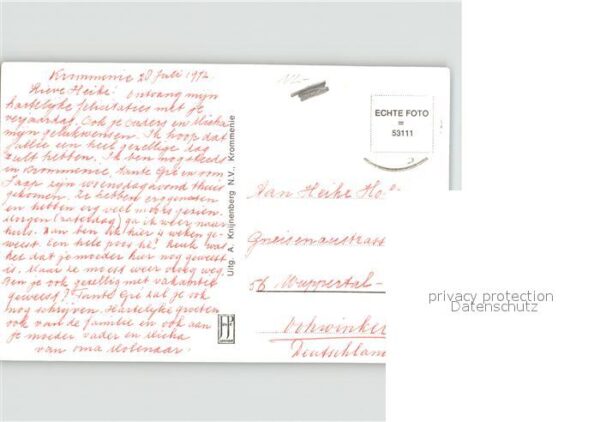 Krommenie 20 Juli 1972
Lieve Heike! ontvang mijn
hartelijke felicitaties met je
verjaardag. Ook je ouders en Micha
mijn gelukwensen. Ik hoop dat
jullie een heel gezellige dag
zult hebben. Ik ben nog steeds
in Krommenie, tante Gré en oom
Jaap zijn woensdagavond thuis
gekomen. Ze hebben
en hebben erg veel moois gezien.
(zaterdag) ga ik weer naar
huis. Dan ben ik hier 4 weken ge-
weest. Een hele poos hè! Leuk was
het dat je moeder hier nog geweest
is. Maar ze moest weer vlug weg.
Ben je ook gezellig met vakantie
geweest? Tante Gré zal je ook
nog schrijven. Hartelijke groeten
ook van de familie en ook aan
je moeder vader en Micha
van oma Molenaar.
Uitg. A. Knijnenberg N.V., Krommenie
12.-
ECHTE FOTO
=
53111
Aan Heike
Gneisenaustrass
56 Wuppertal-
Vohwinkel
Deutschland
privacy protection
Datenschutz